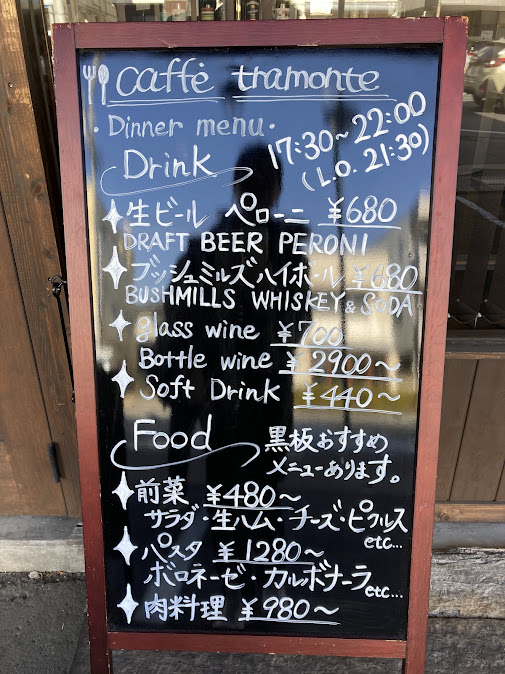 caffè tramonte
・Dinner menu・
17:30~22:00
(L.O. 21:30)
Drink
生ビール ペローニ ¥680
DRAFT BEER PERONI
ブッシュミルズハイボール ¥680
BUSHMILLS WHISKEY & SODA
glass wine ¥700
Bottle wine ¥2900~
Soft Drink ¥440~
Food
黒板おすすめ
メニューあります。
前菜 ¥480~
サラダ・生ハム・チーズ・ピクルス
etc...
パスタ ¥1280~
ボロネーゼ・カルボナーラ
etc...
肉料理 ¥980~